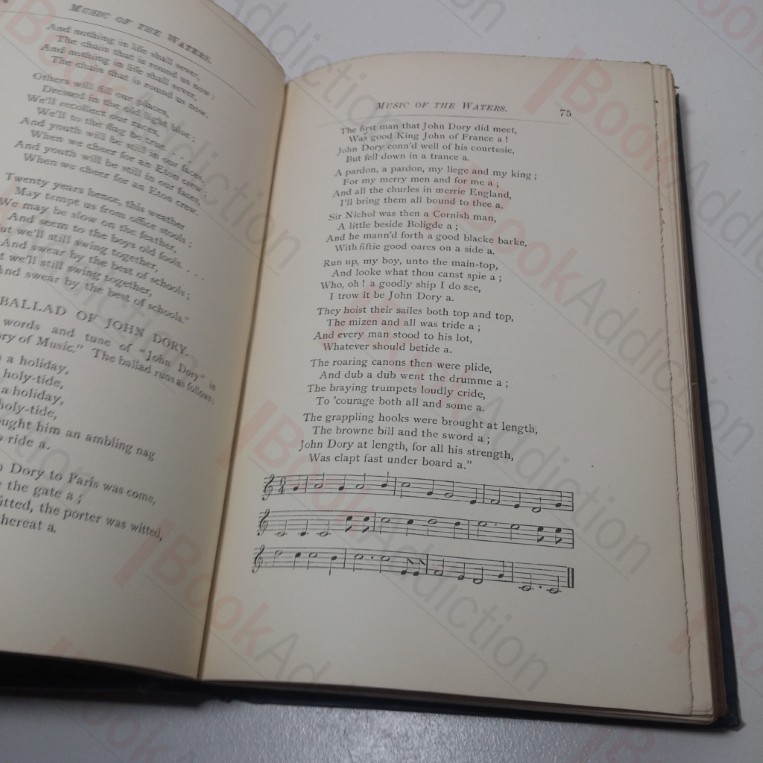 MUSIC OF THE WATERS.
And nothing in life shall sever,
The chain that is round us now :
And nothing in life shall sever,
The chain that is round us now.
Others will fill our places,
Dressed in the old light blue ;
We'll recollect our races,
We'll to the flag be true. . . .
And youth will be still in our faces,
When we cheer for an Eton crew ;
And youth will be still in our faces,
When we cheer for an Eton crew.
Twenty years hence, this weather
May tempt us from office stools :
We may be slow on the feather,
And seem to the boys old fools. . . .
But we'll still swing together,
And swear by the best of schools ;
But we'll still swing together,
And swear by the best of schools."
BALLAD OF JOHN DORY.
words and tune of "John Dory" in
ory of Music." The ballad runs as follows:
a holiday,
holy-tide,
a holiday,
holy-tide,
ught him an ambling nag
ride a.
Dory to Paris was come,
the gate a ;
itted, the porter was witted,
thereat a.
MUSIC OF THE WATERS.
75
The first man that John Dory did meet,
Was good King John of France a !
John Dory conn'd well of his courtesie,
But fell down in a trance a.
A pardon, a pardon, my liege and my king ;
For my merry men and for me a ;
And all the churles in merrie England,
I'll bring them all bound to thee a.
Sir Nichol was then a Cornish man,
A little beside Boligde a ;
And he mann'd forth a good blacke barke,
With fiftie good oares on a side a.
Run up, my boy, unto the main-top,
And looke what thou canst spie a ;
Who, oh ! a goodly ship I do see,
I trow it be John Dory a.
They hoist their sailes both top and top,
The mizen and all was tride a ;
And every man stood to his lot,
Whatever should betide a.
The roaring canons then were plide,
And dub a dub went the drumme a ;
The braying trumpets loudly cride,
To 'courage both all and some a.
The grappling hooks were brought at length,
The browne bill and the sword a ;
John Dory at length, for all his strength,
Was clapt fast under board a."